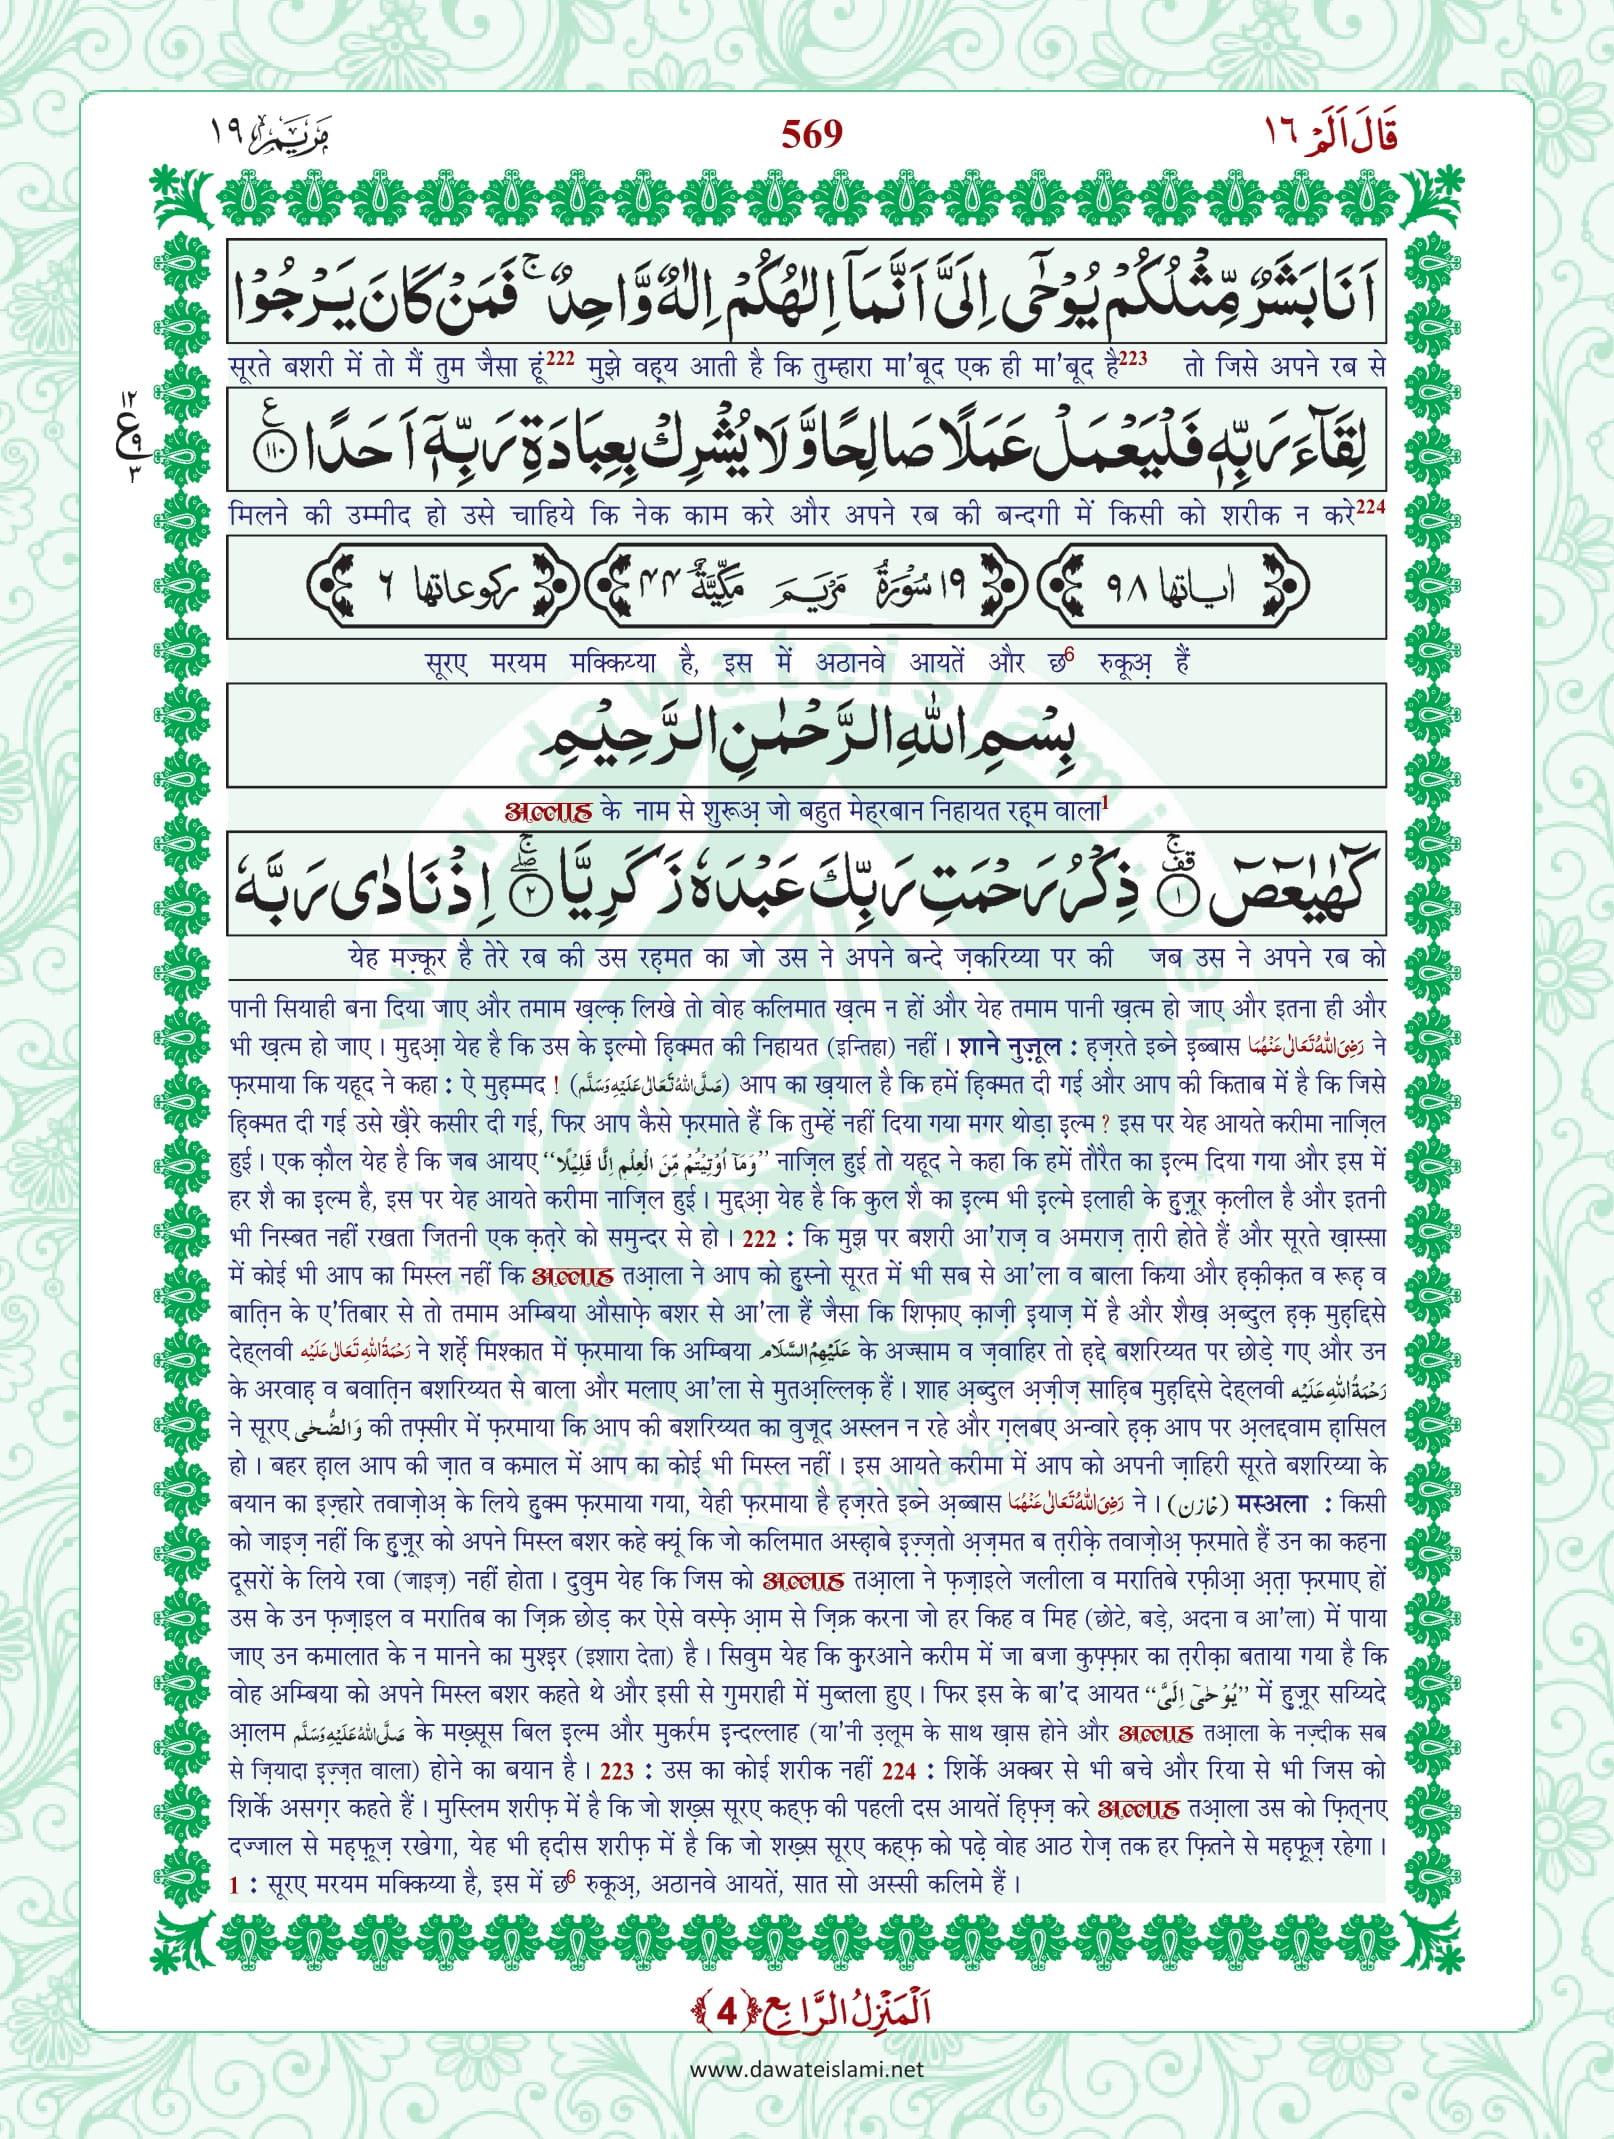 مَرْيَم ١٩ 569 قَالَ اَلَمْ ١٦
اَنَا بَشَرٌ مِّثْلُكُمْ يُوْحٰۤى اِلَیَّ اَنَّمَاۤ اِلٰهُكُمْ اِلٰهٌ وَّاحِدٌ ۚ فَمَنْ كَانَ يَرْجُوْا
सूरते बशरी में तो मैं तुम जैसा हूं222 मुझे वह़्य आती है कि तुम्हारा मा'बूद एक ही मा'बूद है223 तो जिसे अपने रब से
لِقَآءَ رَبِّهٖ فَلْيَعْمَلْ عَمَلًا صَالِحًا وَّلَا يُشْرِكْ بِعِبَادَةِ رَبِّهٖۤ اَحَدًا ﴿۱۱۰﴾ ع
١٢ ع ٩ ٣
मिलने की उम्मीद हो उसे चाहिये कि नेक काम करे और अपने रब की बन्दगी में किसी को शरीक न करे224
اٰیاتها ٩٨ ١٩ سُوْرَةُ مَرْيَمَ مَكِّيَّةٌ ٤٤ رکوعاتها ٦
सूरए मरयम मक्किय्या है, इस में अठानवे आयतें और छ6 रुकूअ़ हैं
بِسْمِ اللّٰهِ الرَّحْمٰنِ الرَّحِيْمِ
अल्लाह के नाम से शुरूअ़ जो बहुत मेह्‌रबान निहायत रह़्म वाला1
كٓهٰيٰعٓصٓ ﴿۱﴾ ذِكْرُ رَحْمَتِ رَبِّكَ عَبْدَهٗ زَكَرِيَّا ﴿۲﴾ اِذْ نَادٰى رَبَّهٗ
येह मज़्कूर है तेरे रब की उस रह़मत का जो उस ने अपने बन्दे ज़करिय्या पर की जब उस ने अपने रब को
पानी सियाही बना दिया जाए और तमाम ख़ल्क़ लिखे तो वोह कलिमात ख़त्म न हों और येह तमाम पानी ख़त्म हो जाए और इतना ही और
भी ख़त्म हो जाए । मुद्दआ़ येह है कि उस के इल्मो हि़क्मत की निहायत (इन्तिहा) नहीं । शाने नुज़ूल : ह़ज़रते इब्ने इ़ब्बास رَضِیَ اللّٰهُ تَعَالٰی عَنْهُمَا ने
फ़रमाया कि यहूद ने कहा : ऐ मुह़म्मद ! (صَلَّی اللّٰهُ تَعَالٰی عَلَیْهِ وَسَلَّم) आप का ख़याल है कि हमें हि़क्मत दी गई और आप की किताब में है कि जिसे
हि़क्मत दी गई उसे ख़ैरे कसीर दी गई, फिर आप कैसे फ़रमाते हैं कि तुम्हें नहीं दिया गया मगर थोड़ा इल्म ? इस पर येह आयते करीमा नाज़िल
हुई । एक क़ौल येह है कि जब आयए ”وَمَاۤ اُوْتِيْتُمْ مِّنَ الْعِلْمِ اِلَّا قَلِيْلًا“ नाज़िल हुई तो यहूद ने कहा कि हमें तौरैत का इल्म दिया गया और इस में
हर शै का इल्म है, इस पर येह आयते करीमा नाज़िल हुई । मुद्दआ़ येह है कि कुल शै का इल्म भी इल्मे इलाही के हुज़ूर क़लील है और इतनी
भी निस्बत नहीं रखता जितनी एक क़त़रे को समुन्दर से हो । 222 : कि मुझ पर बशरी आ'राज़ व अमराज़ त़ारी होते हैं और सूरते ख़ास्सा
में कोई भी आप का मिस्ल नहीं कि अल्लाह तआ़ला ने आप को हुस्नो सूरत में भी सब से आ'ला व बाला किया और ह़क़ीक़त व रूह़ व
बात़िन के ए'तिबार से तो तमाम अम्बिया औसाफ़े बशर से आ'ला हैं जैसा कि शिफ़ाए क़ाज़ी इयाज़ में है और शैख़ अ़ब्दुल ह़क़ मुह़द्दिसे
देह्‌लवी رَحْمَةُ اللّٰهِ تَعَالٰی عَلَیْه ने शर्ह़े मिश्कात में फ़रमाया कि अम्बिया عَلَیْهِمُ السَّلَام के अज्साम व ज़वाहिर तो ह़द्दे बशरिय्यत पर छोड़े गए और उन
के अरवाह़ व बवात़िन बशरिय्यत से बाला और मलाए आ'ला से मुतअ़ल्लिक़ हैं । शाह अ़ब्दुल अ़ज़ीज़ साह़िब मुह़द्दिसे देह्‌लवी رَحْمَةُ اللّٰهِ عَلَیْه
ने सूरए وَالضُّحٰی की तफ़्सीर में फ़रमाया कि आप की बशरिय्यत का वुजूद अस्लन न रहे और ग़लबए अन्वारे ह़क़ आप पर अ़लद्दवाम ह़ासिल
हो । बहर ह़ाल आप की ज़ात व कमाल में आप का कोई भी मिस्ल नहीं । इस आयते करीमा में आप को अपनी ज़ाहिरी सूरते बशरिय्या के
बयान का इज़्हारे तवाज़ोअ़ के लिये हुक्म फ़रमाया गया, येही फ़रमाया है ह़ज़रते इब्ने अ़ब्बास رَضِیَ اللّٰهُ تَعَالٰی عَنْهُمَا ने । (خازن) मस्अला : किसी
को जाइज़ नहीं कि हुज़ूर को अपने मिस्ल बशर कहे क्यूं कि जो कलिमात अस्ह़ाबे इज़्ज़तो अ़ज़मत ब त़रीक़े तवाज़ोअ़ फ़रमाते हैं उन का कहना
दूसरों के लिये रवा (जाइज़) नहीं होता । दुवुम येह कि जिस को अल्लाह तआ़ला ने फ़ज़ाइले जलीला व मरातिबे रफ़ीआ़ अ़त़ा फ़रमाए हों
उस के उन फ़ज़ाइल व मरातिब का ज़िक्र छोड़ कर ऐसे वस्फ़े आ़म से ज़िक्र करना जो हर किह व मिह (छोटे, बड़े, अदना व आ'ला) में पाया
जाए उन कमालात के न मानने का मुश्इर (इशारा देता) है । सिवुम येह कि क़ुरआने करीम में जा बजा कुफ़्फ़ार का त़रीक़ा बताया गया है कि
वोह अम्बिया को अपने मिस्ल बशर कहते थे और इसी से गुमराही में मुब्तला हुए । फिर इस के बा'द आयत ”يُوْحٰۤى اِلَیَّ“ में हुज़ूर सय्यिदे
आ़लम صَلَّی اللّٰهُ عَلَیْهِ وَسَلَّم के मख़्सूस बिल इल्म और मुकर्रम इन्दल्लाह (या'नी उ़लूम के साथ ख़ास होने और अल्लाह तआ़ला के नज़्दीक सब
से ज़ियादा इज़्ज़त वाला) होने का बयान है । 223 : उस का कोई शरीक नहीं 224 : शिर्के अक्बर से भी बचे और रिया से भी जिस को
शिर्के असग़र कहते हैं । मुस्लिम शरीफ़ में है कि जो शख़्स सूरए कह्‌फ़ की पहली दस आयतें हि़फ़्ज़ करे अल्लाह तआ़ला उस को फ़ित्‌नए
दज्जाल से मह़फ़ूज़ रखेगा, येह भी ह़दीस शरीफ़ में है कि जो शख़्स सूरए कह्‌फ़ को पढ़े वोह आठ रोज़ तक हर फ़ितने से मह़फ़ूज़ रहेगा ।
1 : सूरए मरयम मक्किय्या है, इस में छ6 रुकूअ़, अठानवे आयतें, सात सो अस्सी कलिमे हैं ।
اَلْمَنْزِلُ الرَّابِع ﴿4﴾
www.dawateislami.net